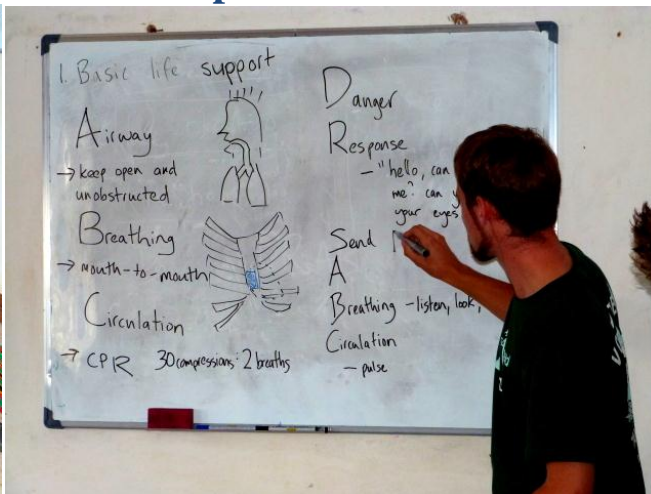 1. Basic life support
Airway
→ keep open and
unobstructed
Breathing
→ mouth-to-mouth
Circulation
→ CPR 30 compressions : 2 breaths
Danger
Response
- "hello, can
me? can
your eyes
Send
A
Breathing - listen, look,
Circulation
- pulse